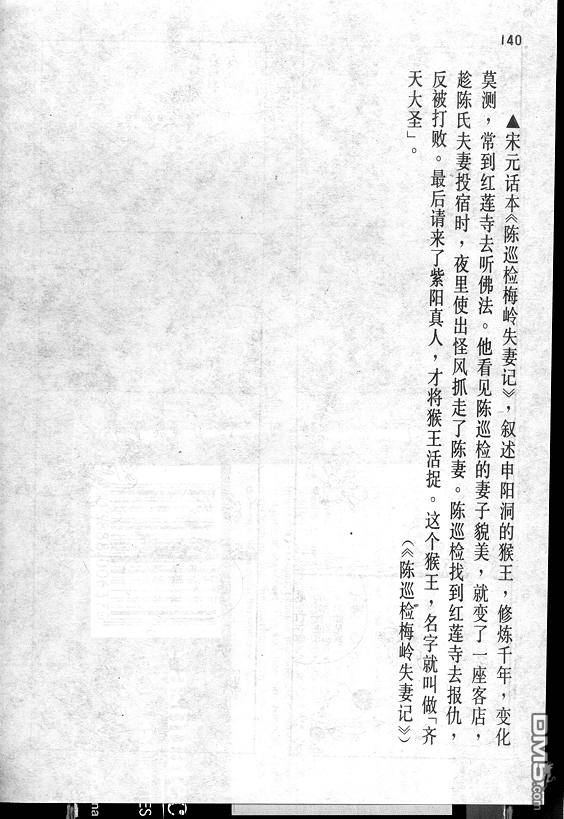 140
▲宋元话本《陈巡检梅岭失妻记》，叙述申阳洞的猴王，修炼千年，变化
莫测，常到红莲寺去听佛法。他看见陈巡检的妻子貌美，就变了一座客店，
趁陈氏夫妻投宿时，夜里使出怪风抓走了陈妻。陈巡检找到红莲寺去报仇，
反被打败。最后请来了紫阳真人，才将猴王活捉。这个猴王，名字就叫做「齐
天大圣」。
（《陈巡检梅岭失妻记》）
DM5.com
ma
ES